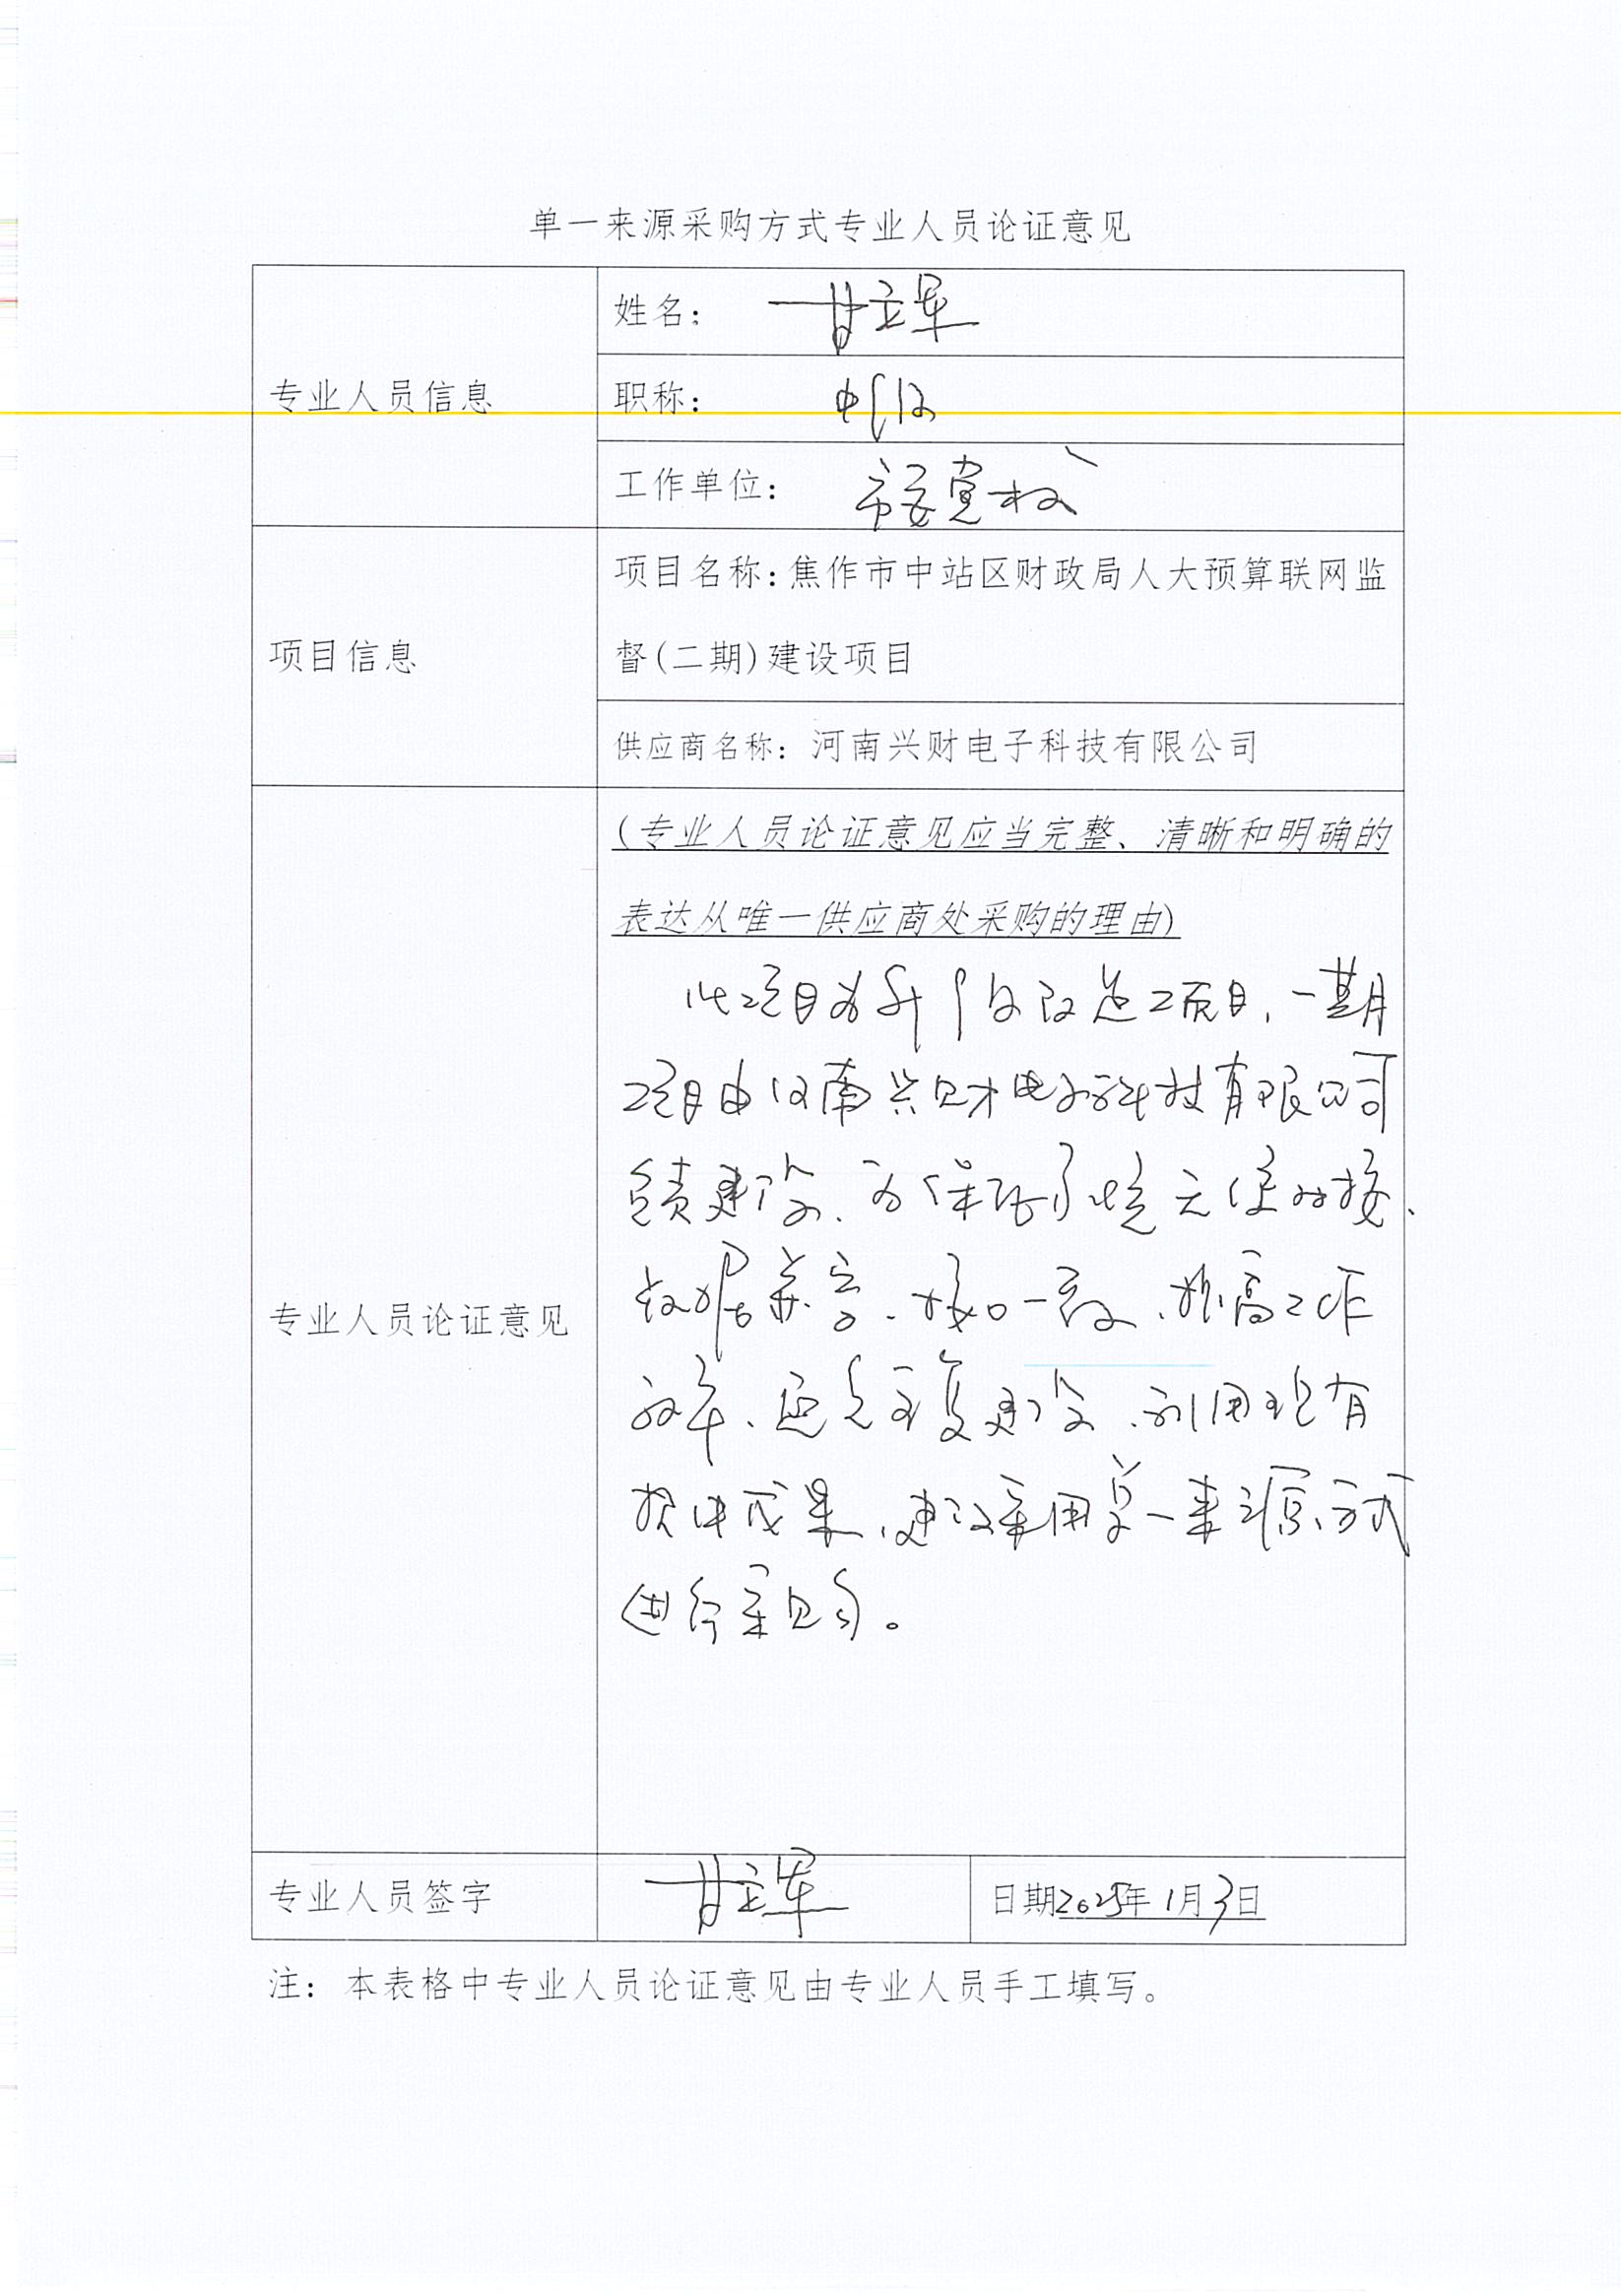 单一来源采购方式专业人员论证意见
专业人员信息
姓名： 甘立军
职称： 中级
工作单位： 市委党校
项目信息
项目名称：焦作市中站区财政局人大预算联网监
督(二期)建设项目
供应商名称：河南兴财电子科技有限公司
专业人员论证意见
(专业人员论证意见应当完整、清晰和明确的
表达从唯一供应商处采购的理由)
此项目为升级改造项目，一期
项目由河南兴财电子科技有限公司
负责建设、为保证系统无缝对接、
数据兼容、接口一致、提高工作
效率、避免重复建设、利用现有
技术成果、建议采用单一来源方式
进行采购。
专业人员签字
甘立军
日期2025年1月3日
注：本表格中专业人员论证意见由专业人员手工填写。